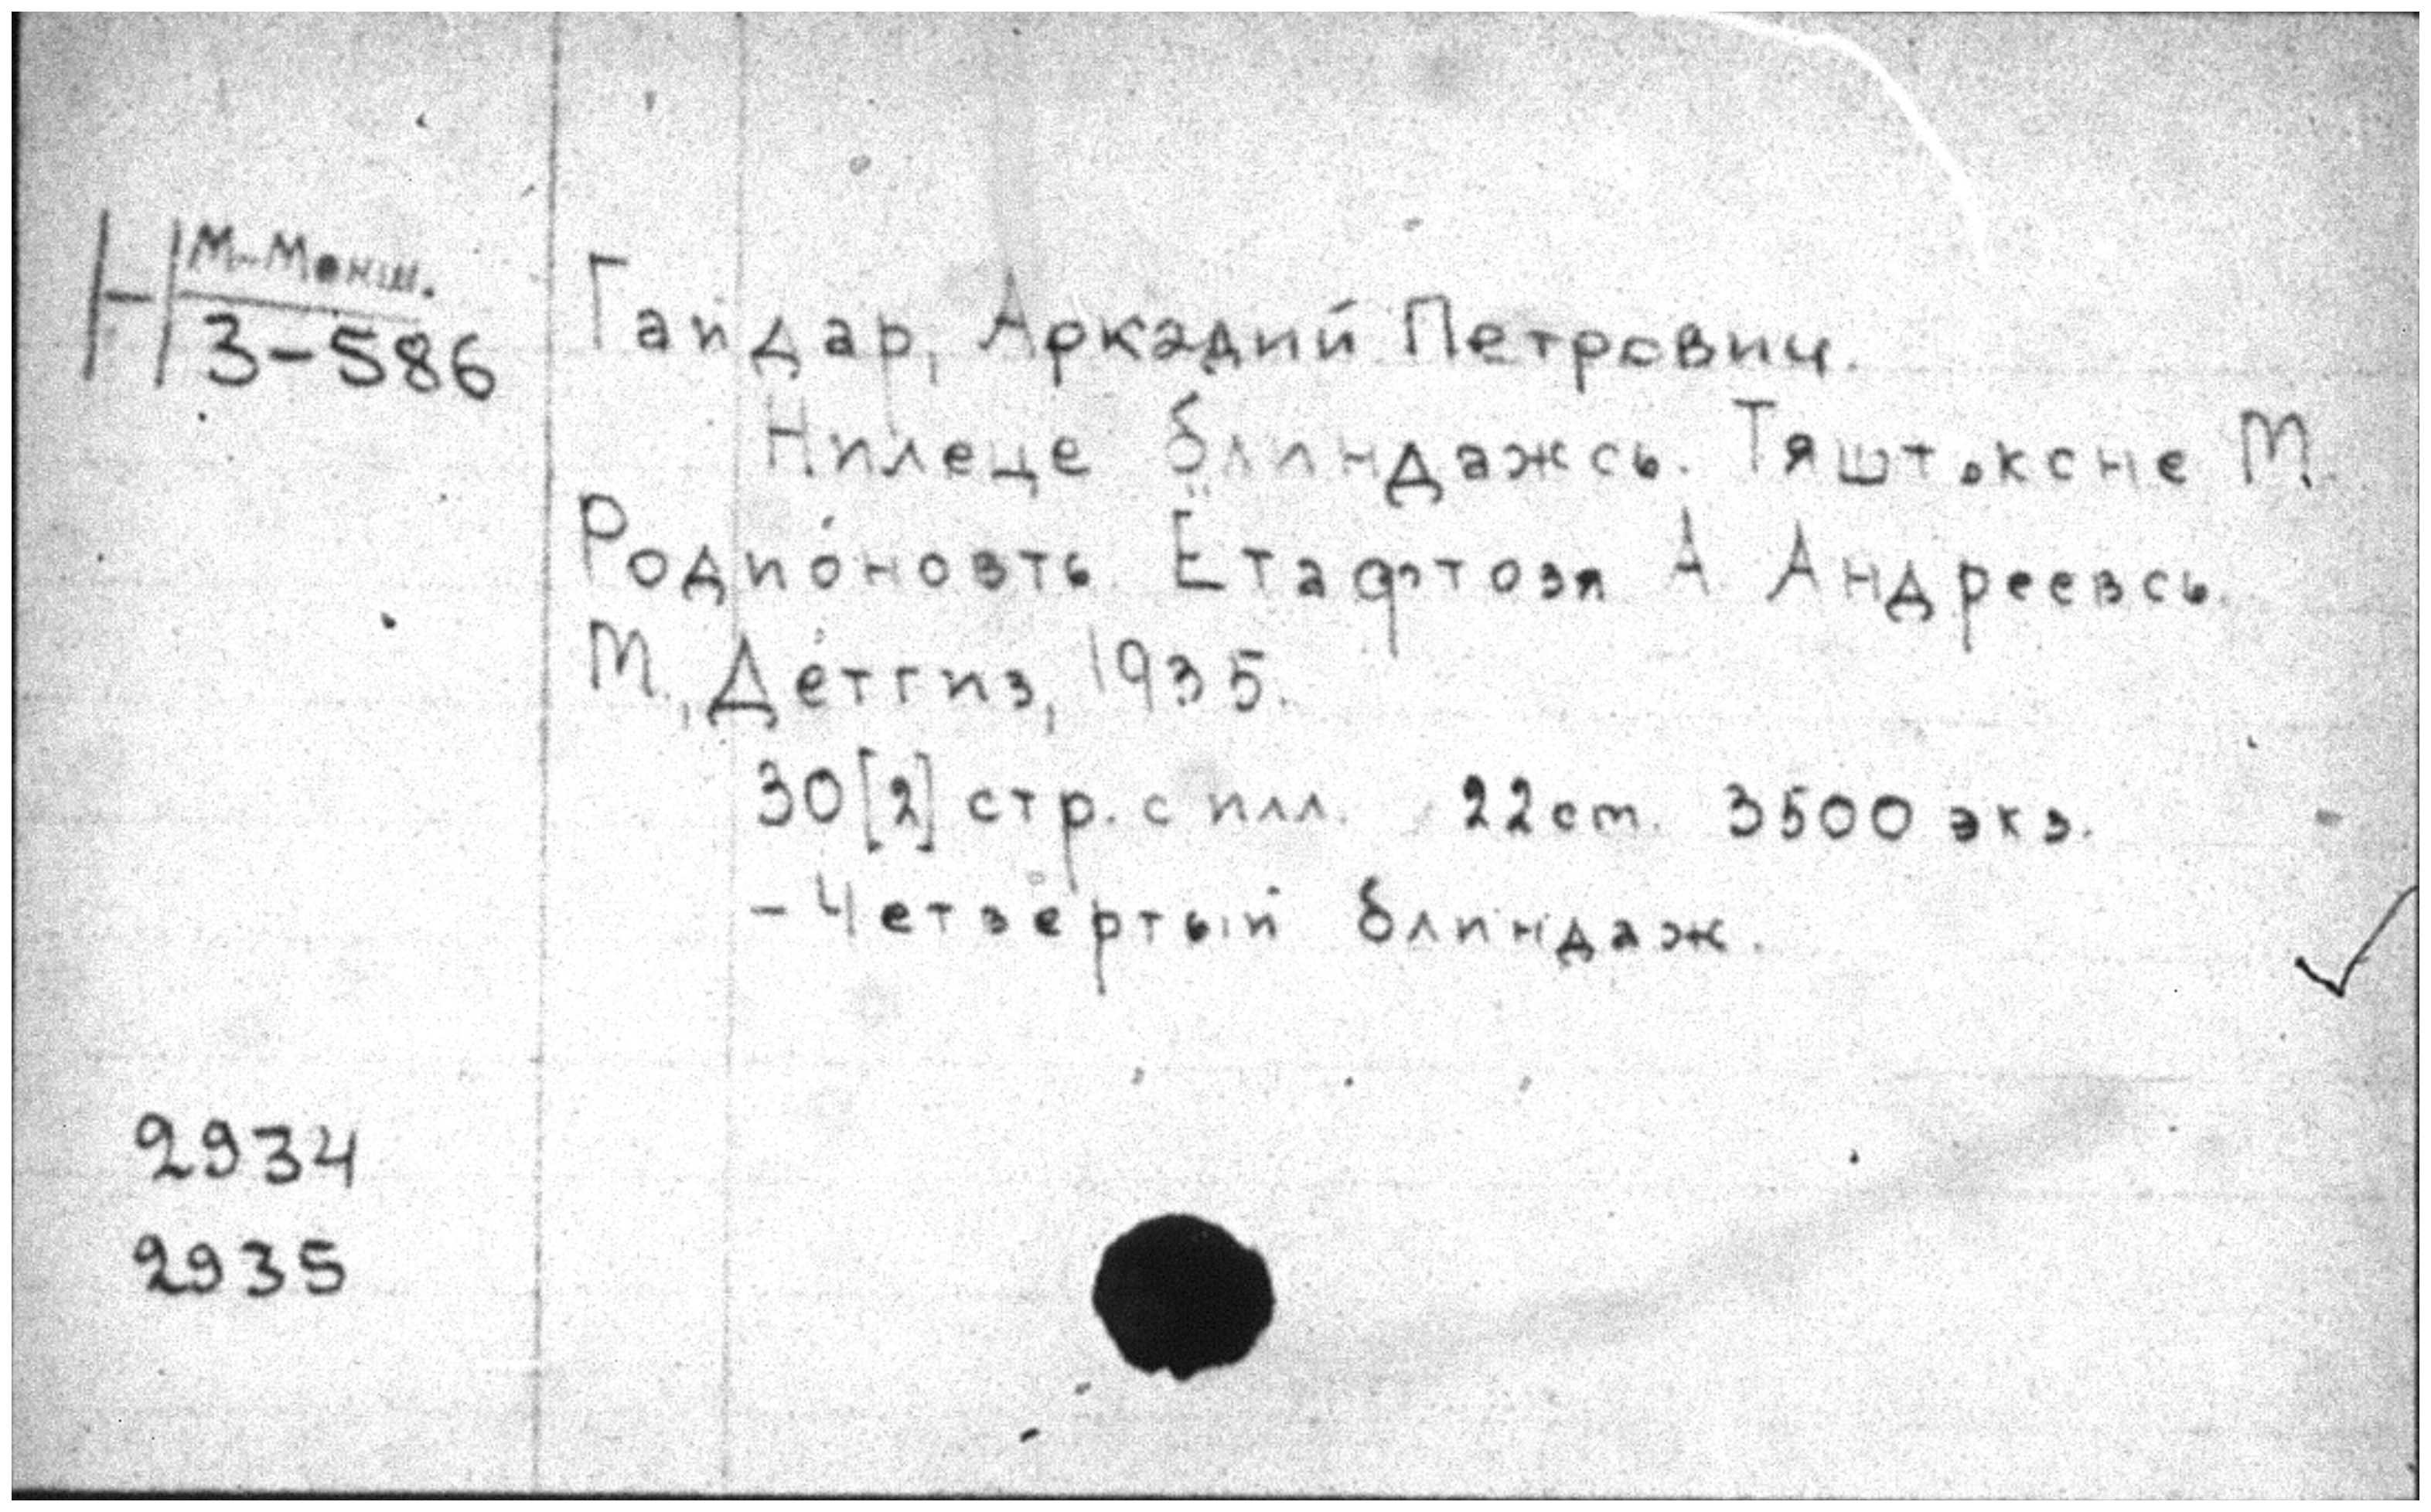 Н М-Мокш.
3-586
Гайдар, Аркадий Петрович.
Нилеце блиндажсь. Тяштоксне М.
Родионовть. Ётафтозя А. Андреевсь.
М., Детгиз, 1935.
30[2] стр. с илл. 22 cm. 3500 экз.
- Четвёртый блиндаж.
2934
2935